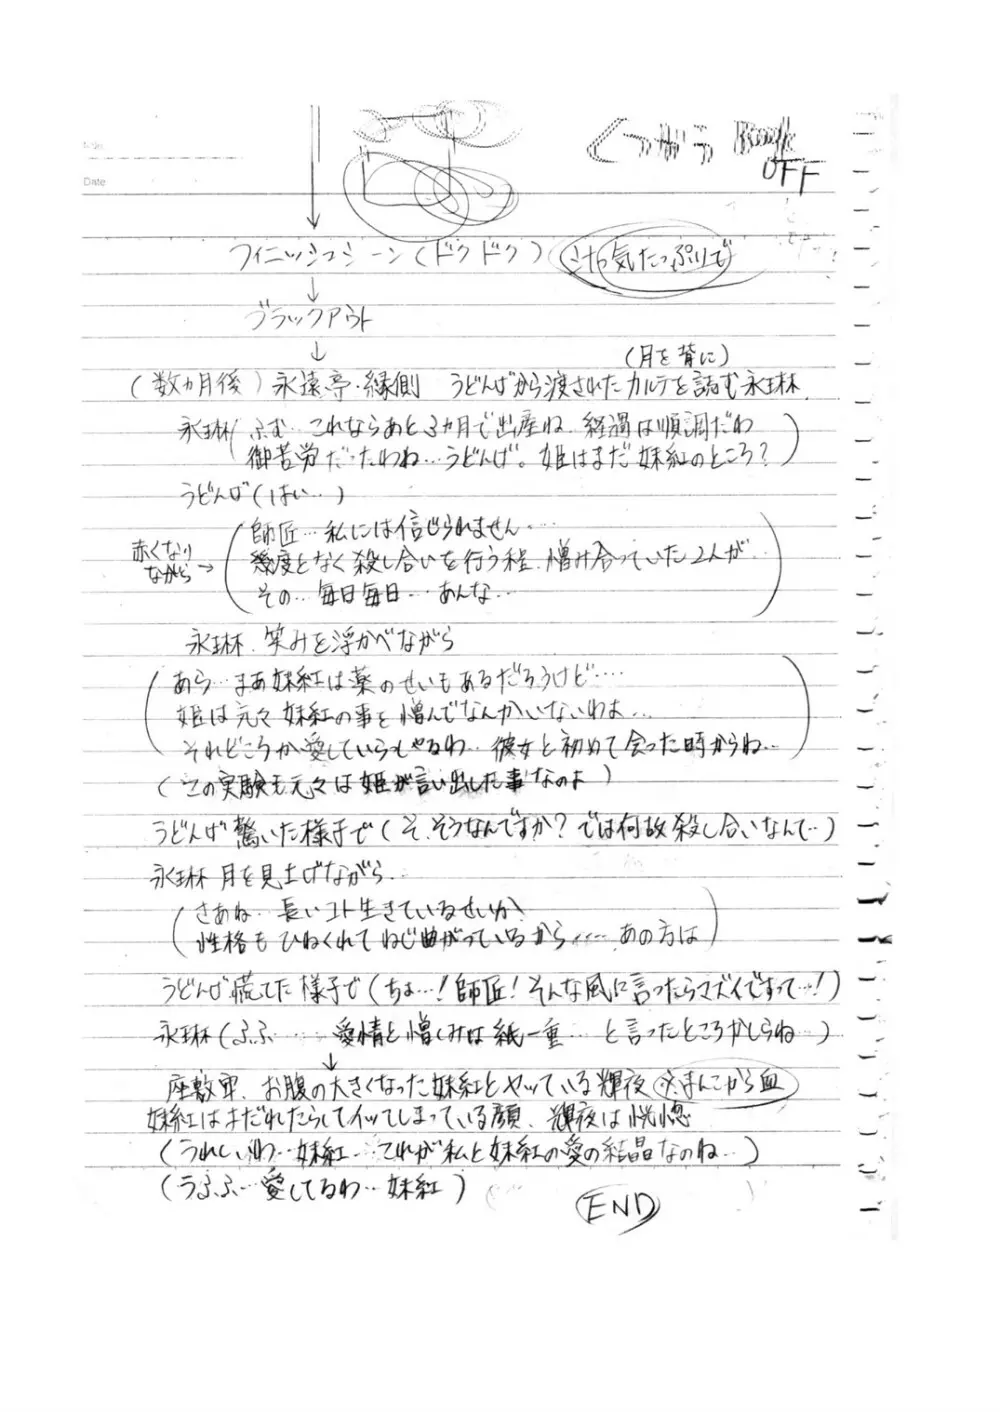 Date
OFF
フィニッシュシーン(ドクドク) 汁っ気たっぷりで
↓
ブラックアウト
↓
(月を背に)
(数ヵ月後)永遠亭・縁側 うどんげから渡されたカルテを読む永琳
永琳(ふむ…これならあと3ヵ月で出産ね 経過は順調だわ
御苦労だったわね…うどんげ。姫はまだ妹紅のところ?)
うどんげ(はい…)
赤くなり
ながら→
(師匠…私には信じられません…
幾度となく殺し合いを行う程、憎み合っていた2人が
その…毎日毎日…あんな…)
永琳、笑みを浮かべながら
(あら…まあ妹紅は薬のせいもあるだろうけど…
姫は元々妹紅の事を憎んでなんかいないわよ…
それどころか愛していらっしゃるわ…彼女と初めて会った時からね…)
(この実験も元々は姫が言い出した事なのよ)
うどんげ驚いた様子で(そ、そうなんですか?では何故殺し合いなんて…)
永琳 月を見上げながら
(さあね…長いコト生きているせいか
性格もひねくれてねじ曲がっているから……あの方は)
うどんげ慌てた様子で(ちょ…!師匠!そんな風に言ったらマズイですって…!)
永琳(ふふ……愛情と憎しみは紙一重…と言ったところかしらね…)
↓
座敷牢、お腹の大きくなった妹紅とヤッている輝夜 ※まんこから血
妹紅はよだれたらしてイッてしまっている顔、輝夜は恍惚
(うれしいわ…妹紅…これが私と妹紅の愛の結晶なのね…)
(うふふ…愛してるわ…妹紅)
END